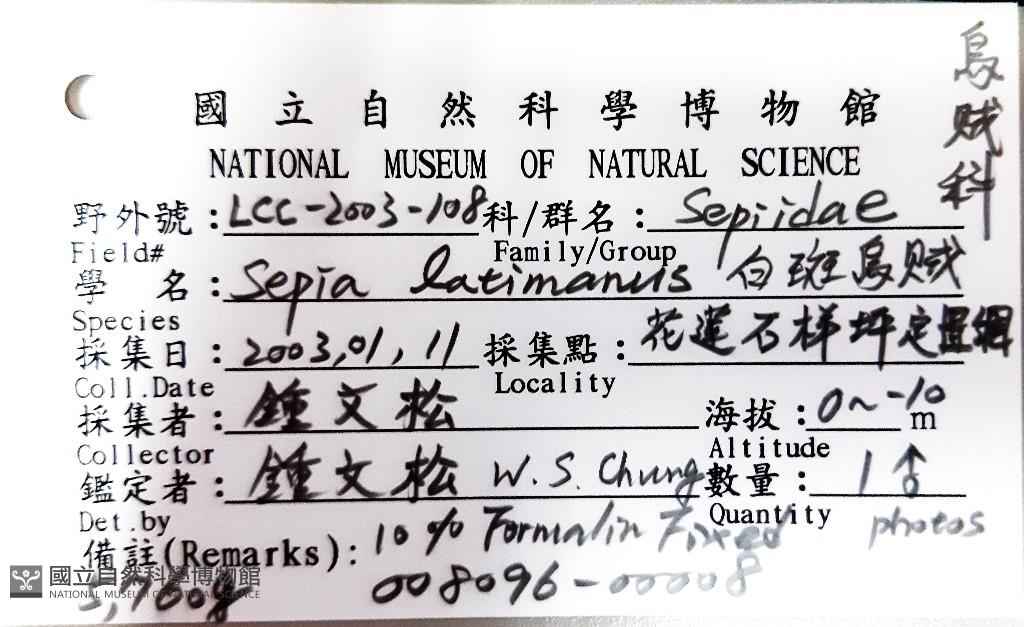 烏賊科
國立自然科學博物館
NATIONAL MUSEUM OF NATURAL SCIENCE
野外號：LCC-2003-108 科/群名：Sepiidae
Field# Family/Group
學 名：Sepia latimanus 白斑烏賊
Species
採集日：2003,01,11 採集點：花蓮石梯坪定置網
Coll.Date Locality
採集者：鍾文松 海拔：0~-10 m
Collector Altitude
鑑定者：鍾文松 W.S. Chung 數量：1♂
Det.by Quantity photos
備註(Remarks)：10% Formalin Fixed
008096-00008
5,760g
國立自然科學博物館
NATIONAL MUSEUM OF NATURAL SCIENCE